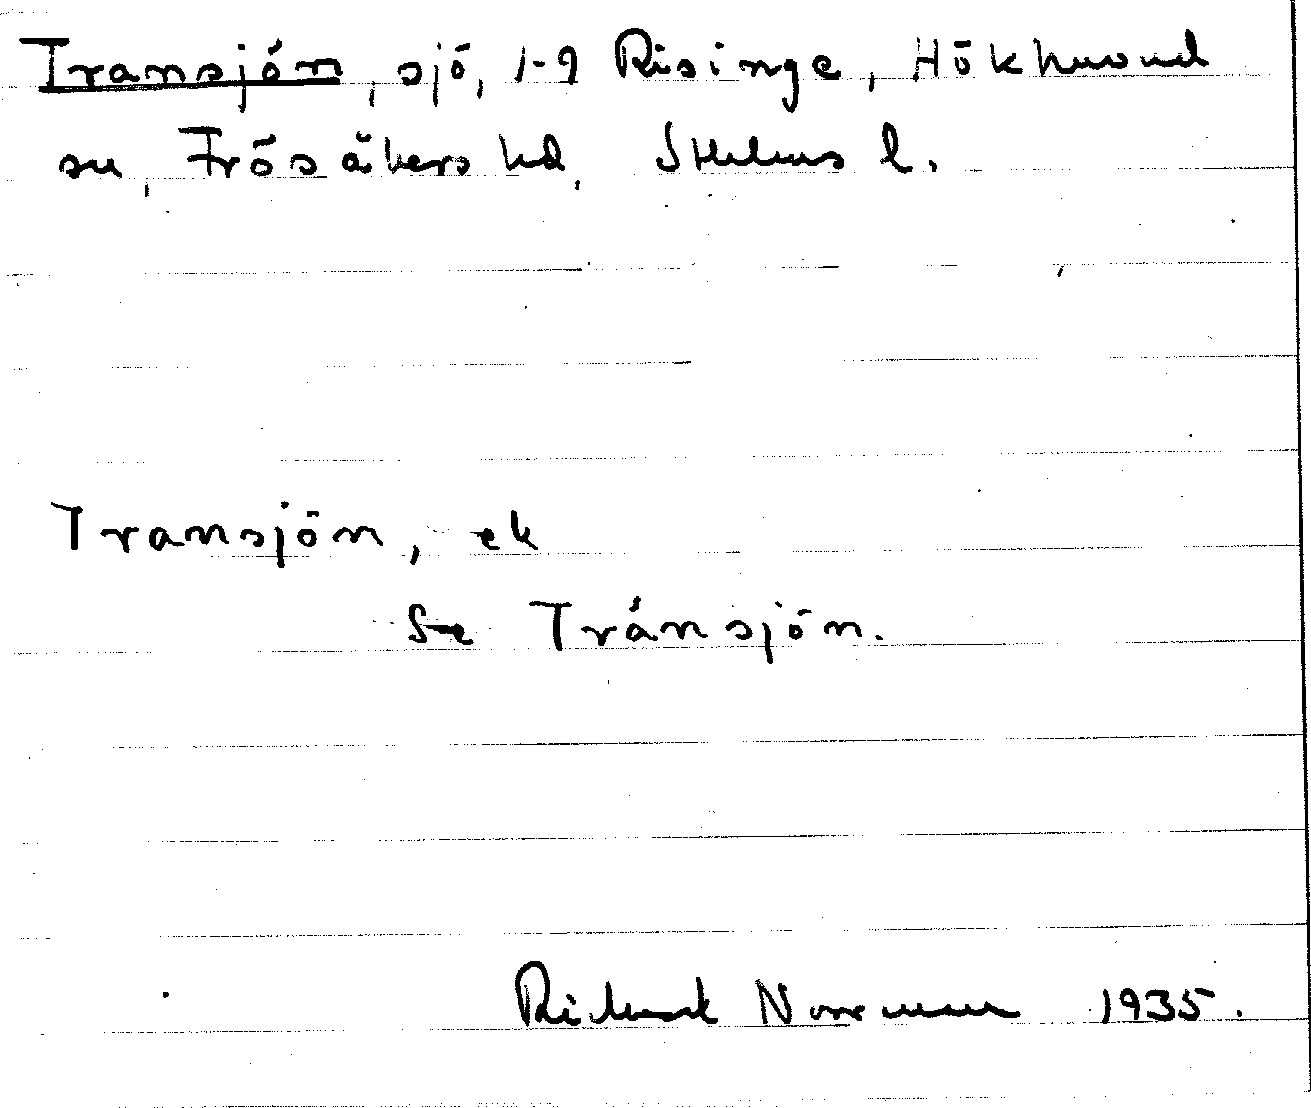 Transjön, sjö, 1-9 Risinge, Hökhuvud
sn, Frösåkers hd, Sthlms l.
Transjön, ek
Se Tránsjön.
Richard Norrman 1935.